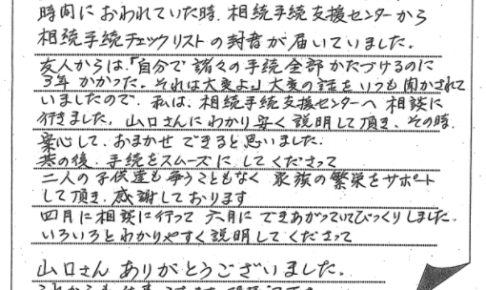 時間におわれていた時、相続手続支援センターから
相続手続チェックリストの封書が届いていました。
友人からは、「自分で諸々の手続全部かたづけるのに
3年かかった。それは大変よ」大変の話をいつも聞かされて
いましたので、私は、相続手続支援センターへ相談に
行きました。山口さんにわかり安く説明して頂き、その時、
安心して、おまかせできると思いました。
其の後、手続をスムーズにしてくださって
二人の子供達も争うこともなく家族の繁栄をサポート
して頂き、感謝しております
四月に相談に行って六月にできあがっていてびっくりしました。
いろいろとわかりやすく説明してくださって
山口さんありがとうございました。